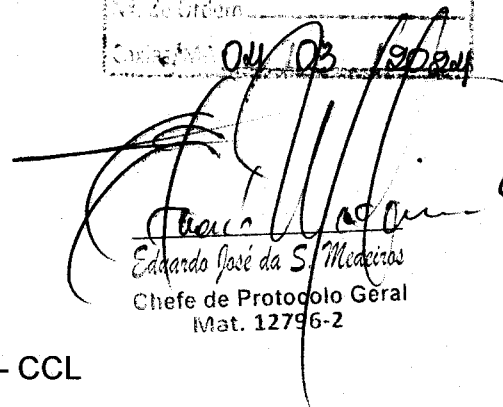 Nº. de Ordem
04 / 03 / 2024
Eduardo José da S. Medeiros
Chefe de Protocolo Geral
Mat. 12796-2
- CCL